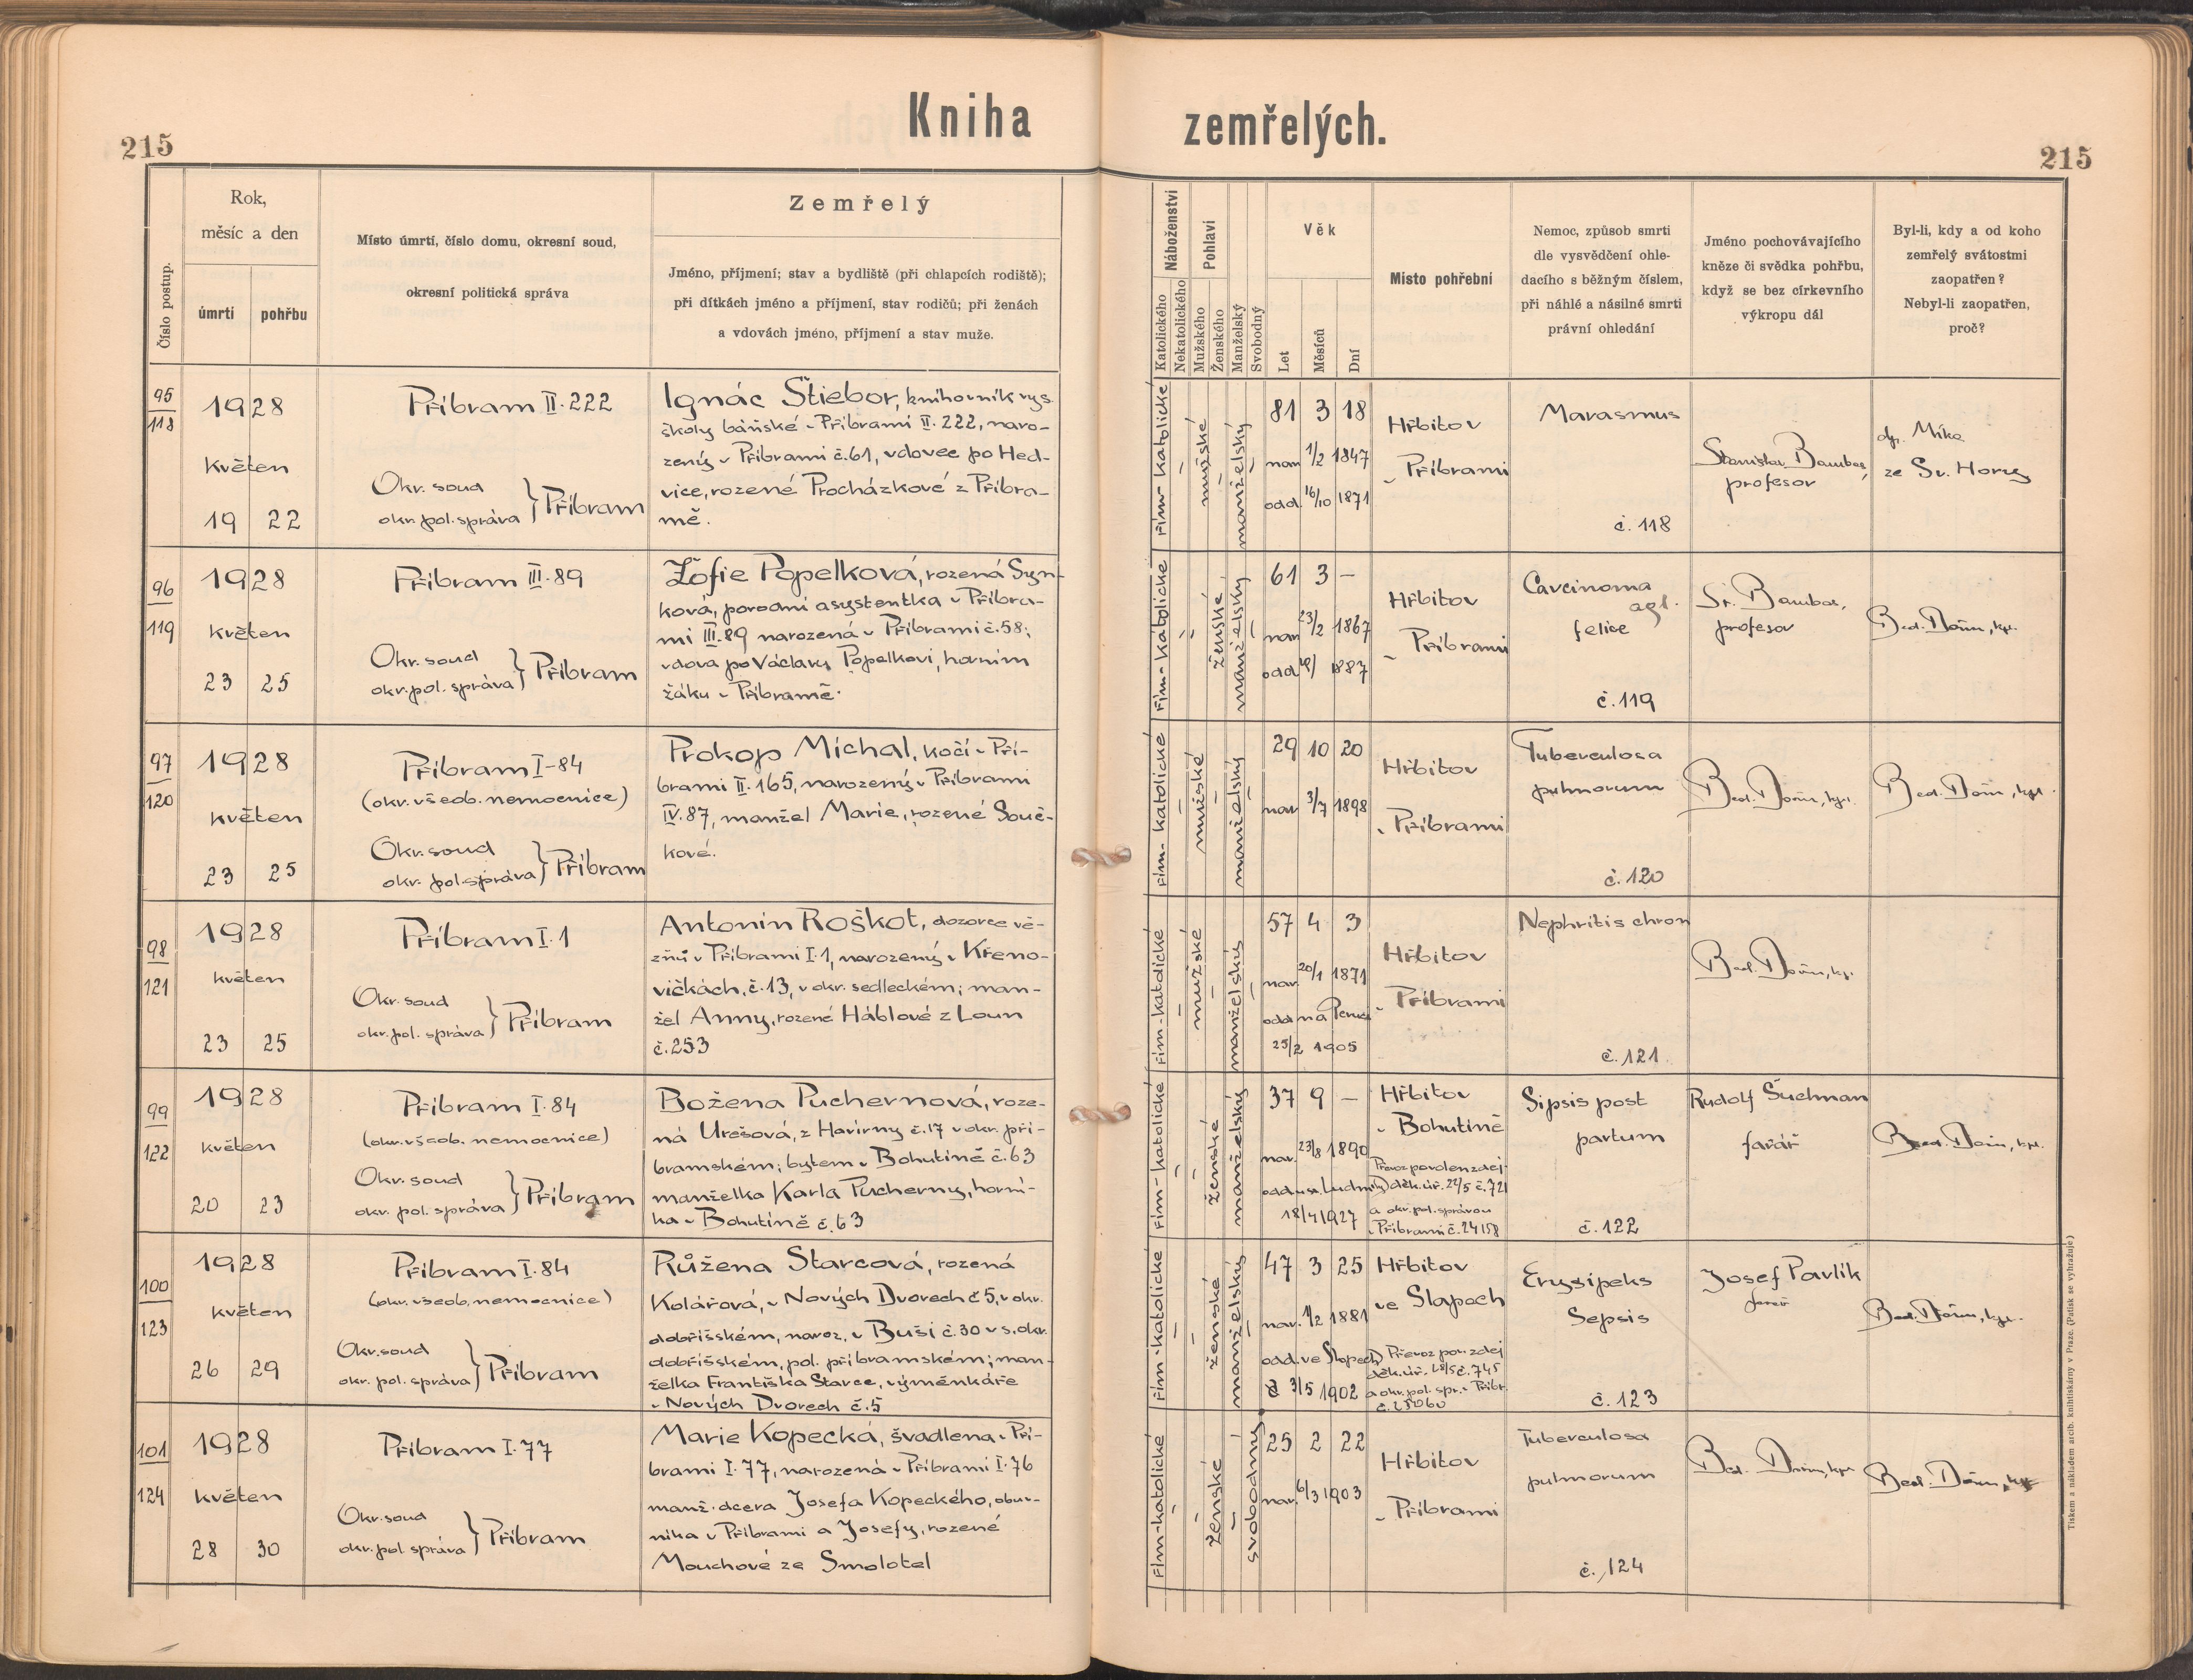 Kniha zemřelých.
215
215
Číslo postup.
Rok,
měsíc a den
úmrtí
pohřbu
Místo úmrtí, číslo domu, okresní soud,
okresní politická správa
Zemřelý
Jméno, příjmení; stav a bydliště (při chlapcích rodiště);
při dítkách jméno a příjmení, stav rodičů; při ženách
a vdovách jméno, příjmení a stav muže.
Náboženství
Katolického
Nekatolického
Pohlaví
Mužského
Ženského
Manželský
Svobodný
Věk
Let
Měsíců
Dní
Místo pohřební
Nemoc, způsob smrti
dle vysvědčení ohle-
dacího s běžným číslem,
při náhlé a násilné smrti
právní ohledání
Jméno pochovávajícího
kněze či svědka pohřbu,
když se bez církevního
výkropu dál
Byl-li, kdy a od koho
zemřelý svátostmi
zaopatřen?
Nebyl-li zaopatřen,
proč?
95
118
1928
květen
19 22
Příbram II. 222
Okr. soud
okr. pol. správa } Příbram
Ignác Štiebor, knihovník vys.
školy báňské v Příbrami II. 222, naro-
zený v Příbrami č. 61, vdovec po Hed-
vice, rozené Procházkové z Příbra-
mě.
řím-katolické
mužské
manželský
81 3 18
nar. 1/2 1847
odd. 16/10 1871
Hřbitov
v Příbrami
Marasmus
č. 118
Stanislav Bambas,
profesor
dp. Míka
ze Sv. Hory
96
119
1928
květen
23 25
Příbram III. 89
Okr. soud
okr. pol. správa } Příbram
Žofie Popelková, rozená Syn-
ková, porodní asystentka v Příbra-
mi III. 89 narozená v Příbrami č. 58;
vdova po Václavu Popelkovi, horním
žáku v Příbramě.
řím-katolické
ženské
manželský
61 3 –
nar. 23/2 1867
odd. 1887
Hřbitov
v Příbrami
Carcinoma
felice
č. 119
St. Bambas,
profesor
Bed. Dörn, kpl.
97
120
1928
květen
23 25
Příbram I-84
(okr. všeob. nemocnice)
Okr. soud
okr. pol. správa } Příbram
Prokop Michal, kočí v Pří-
brami II. 165, narozený v Příbrami
IV. 87, manžel Marie, rozené Souč-
kové.
řím-katolické
mužské
manželský
29 10 20
nar. 3/7 1898
Hřbitov
v Příbrami
Tuberculosa
pulmorum
č. 120
Bed. Dörn, kpl.
Bed. Dörn, kpl.
98
121
1928
květen
23 25
Příbram I. 1
Okr. soud
okr. pol. správa } Příbram
Antonín Roškot, dozorce vě-
zňů v Příbrami I. 1, narozený v Křeno-
vičkách, č. 13, v okr. sedleckém; man-
žel Anny, rozené Háblové z Loun
č. 253
řím-katolické
mužské
manželský
57 4 3
nar. 20/1 1871
odd. na Peruci
25/2 1905
Hřbitov
v Příbrami
Nephritis chron
č. 121.
Bed. Dörn, kpl.
99
122
1928
květen
20 23
Příbram I. 84
(okr. všeob. nemocnice)
Okr. soud
okr. pol. správa } Příbram
Božena Puchernová, roze-
ná Urešová, z Havírny č. 17 v okr. pří-
bramském; bytem v Bohutíně č. 63
manželka Karla Pucherny, horní-
ka v Bohutíně č. 63
řím-katolické
ženské
manželský
37 9 –
nar. 23/8 1890
odd. u sv. Ludmily
18/4 1927
Hřbitov
v Bohutíně
Převoz povolen zdej.
děk. úř. 22/5 č. 721
a okr. pol. správou
v Příbrami č. 24158
Sipsis post
partum
č. 122
Rudolf Šuchman
farář
Bed. Dörn, kpl.
100
123
1928
květen
26 29
Příbram I. 84
(okr. všeob. nemocnice)
Okr. soud
okr. pol. správa } Příbram
Růžena Starcová, rozená
Kolářová, v Nových Dvorech č 5, v okr.
dobříšském, naroz. v Buši č. 30 v s. okr.
dobříšském, pol. příbramském; man-
želka Františka Starce, výměnkáře
v Nových Dvorech č. 5
řím-katolické
ženské
manželský
47 3 25
nar. 1/2 1881
odd. ve Slapech
3/5 1902
Hřbitov
ve Slapech
Převoz pov. zdej.
děk. úř. 28/5 č. 745
a okr. pol. spr. v Příbr.
č. 25060
Erysipeks
Sepsis
č. 123
Josef Pavlík
farář
Bed. Dörn, kpl.
101
124
1928
květen
28 30
Příbram I. 77
Okr. soud
okr. pol. správa } Příbram
Marie Kopecká, švadlena v Pří-
brami I. 77, narozená v Příbrami I. 76
manž. dcera Josefa Kopeckého, obuv-
níka v Příbrami a Josefy, rozené
Mouchové ze Smolotel
řím-katolické
ženské
svobodný
25 2 22
nar. 6/3 1903
Hřbitov
v Příbrami
Tuberculosa
pulmorum
č. 124
Bed. Dörn, kpl.
Bed. Dörn, kpl.
Tiskem a nákladem arcib. knihtiskárny v Praze. (Patisk se vyhražuje)